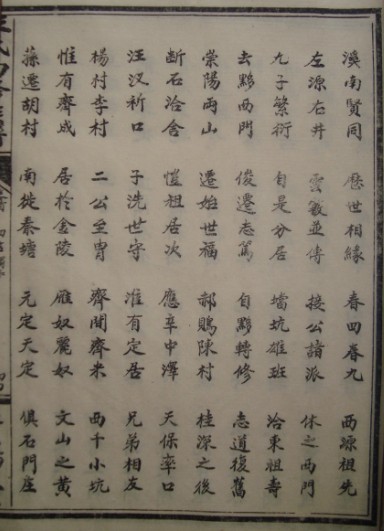 溪南賢同 歷世相緣 春田眷九 西源祖先
左源右井 雲嶽並傳 接公諸派 休之西門
九子繁衍 自是分居 壋坑雄班 洽東祖壽
去黟西門 俊遷志篤 自黟轉修 志道復舊
崇陽兩山 遷始世福 郝賜陳村 桂深之後
斷石洽舍 愷祖居次 應辛中澤 天保率口
汪汊祈口 子洗世守 淮有定居 兄弟相友
楊村李村 二公至胄 齊聞齊來 西千小坑
惟有齊成 居於金陵 雁奴麗奴 文山之黃
蓀遷胡村 南徙秦塘 元定天定 俱石門庄